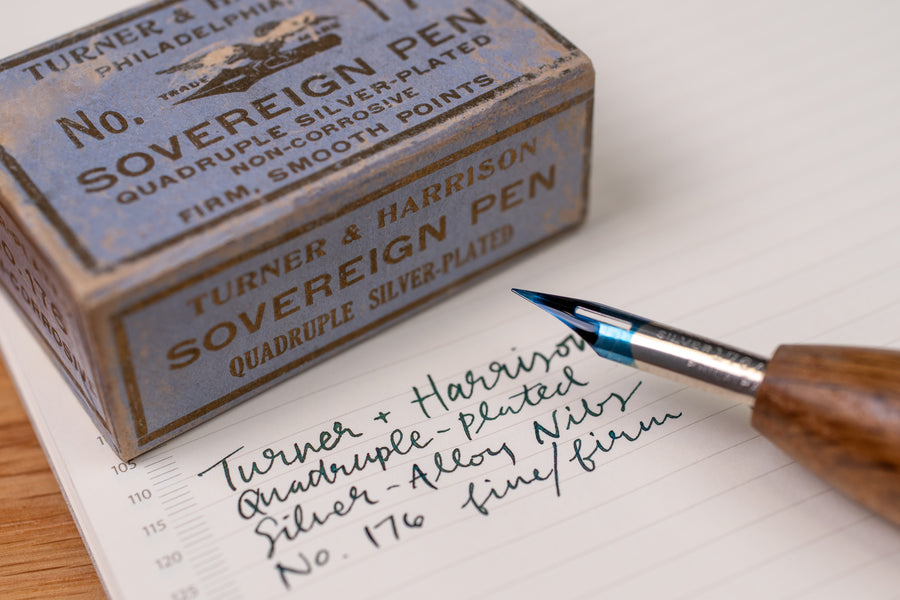 TURNER &
PHILADELPHIA,
17
TRADE MARK
No.
SOVEREIGN PEN
QUADRUPLE SILVER-PLATED
NON-CORROSIVE
FIRM, SMOOTH POINTS
TURNER & HARRISON
SOVEREIGN PEN
QUADRUPLE SILVER-PLATED
Turner + Harrison
Quadruple-plated
Silver-Alloy Nibs
No. 176 fine/firm
105
110
115
120
125